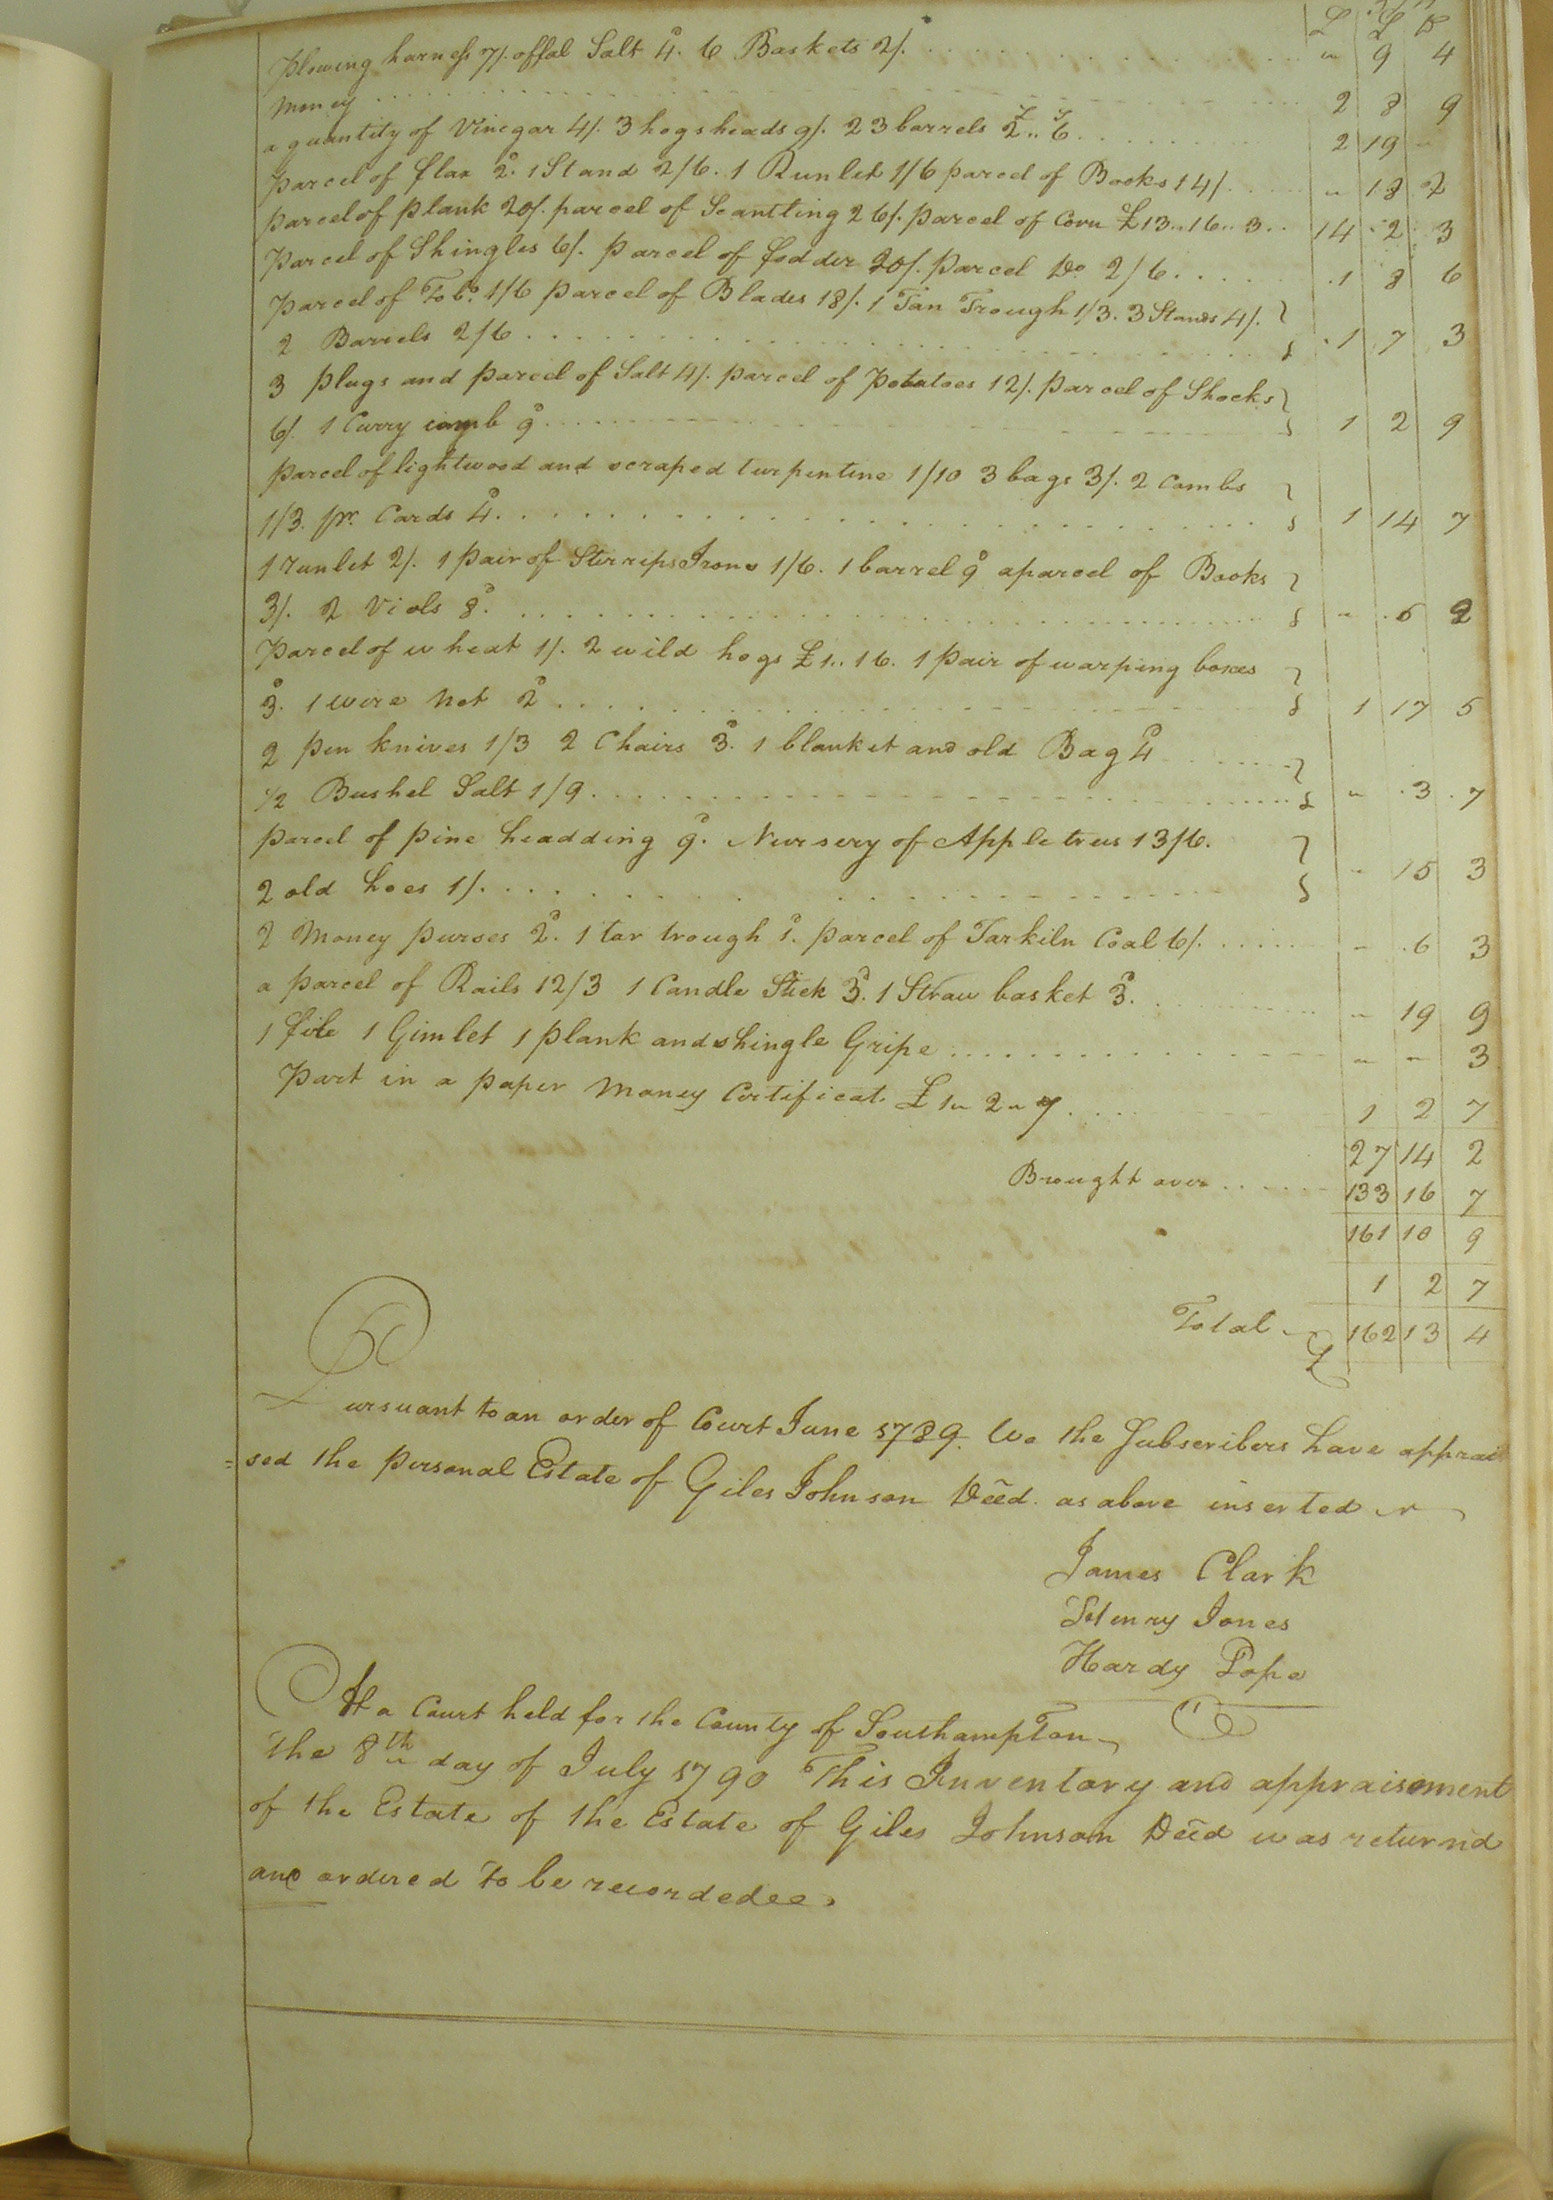 £ S D
plowing harness 7/. offal Salt 4d. 6 Baskets 2/. . . . . " 9 4
money . . . . . 2 8 9
a quantity of Vinegar 4/. 3 hogsheads 9/. 23 barrels £2..6 . . . . 2 19 "
parcel of flax 2d. 1 Stand 2/6. 1 Runlet 1/6 parcel of Books 14/. . . . " 18 2
parcel of plank 20/. parcel of Scantling 26/. parcel of Corn £13..16..3 . . 14 2 3
Parcel of Shingles 6/. parcel of fodder 20/. parcel Do 2/6 . . . . 1 8 6
Parcel of Tobo. 1/6 parcel of Blades 18/. 1 Tan Trough 1/3. 3 Stands 4/. }
2 Barrels 2/6 . . . . . } 1 7 3
3 plugs and parcel of Salt 4/. parcel of potatoes 12/. parcel of Shocks }
6/. 1 Curry comb 9d . . . . . } 1 2 9
parcel of lightwood and scraped turpentine 1/10 3 bags 3/. 2 Combs }
1/3. pr. Cards 4d . . . . . } 1 14 7
1 runlet 2/. 1 pair of Stirrips Irons 1/6. 1 barrel 9d a parcel of Books }
3/. 2 Viols 8d. . . . . . } " 6 2
Parcel of wheat 1/. 2 wild hogs £1..16. 1 pair of warping boxes }
3d. 1 wire net 2d . . . . . } 1 17 5
2 pen knives 1/3 2 Chairs 3d. 1 blanket and old Bag 4d . . . }
1/2 Bushel Salt 1/9 . . . . . } " 3 7
parcel of pine headding 9d. Nursery of Apple trees 13/6. }
2 old hoes 1/. . . . . . } " 15 3
2 Money purses 2d. 1 tar trough 1d. parcel of Tarkiln Coal 6/. . . . . " 6 3
a parcel of Rails 12/3 1 Candle Stick 3d. 1 Straw basket 3d. . . . . " 19 9
1 file 1 Gimlet 1 plank and shingle Gripe . . . . . " " 3
Part in a paper Money Certificat. £1"2"7 . . . . 1 2 7
27 14 2
Brought over . . . . . 133 16 7
161 10 9
1 2 7
Total £ 162 13 4
Pursuant to an order of Court June 1789. We the Subscribers have apprai
=sed the personal Estate of Giles Johnson Decd. as above inserted
James Clark
Henry Jones
Hardy Pope
At a Court held for the County of Southampton
the 8th day of July 1790 This Inventory and appraisement
of the Estate of the Estate of Giles Johnson Decd was returnd
and ordered to be recordedee.